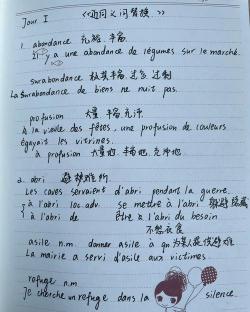 Jour 1 《近同义词替换》
1. abondance 充裕. 丰富.
Il y a une abondance de légumes sur le marché.
surabondance 极其丰富. 过多 过剩
La surabondance de biens ne nuit pas.
profusion 大量 丰富. 充沛.
A la veille des fêtes, une profusion de couleurs
égayait les vitrines.
à profusion 大量地. 充沛地
2. abri 避难所.
Les caves servaient d'abri pendant la guerre.
à l'abri loc.adv. se mettre à l'abri.
à l'abri de être à l'abri du besoin
不愁衣食
asile n.m. donner asile à qn 为某人提供避难
La mairie a servi d'asile aux victimes.
refuge n.m
Je cherche un refuge dans la silence.